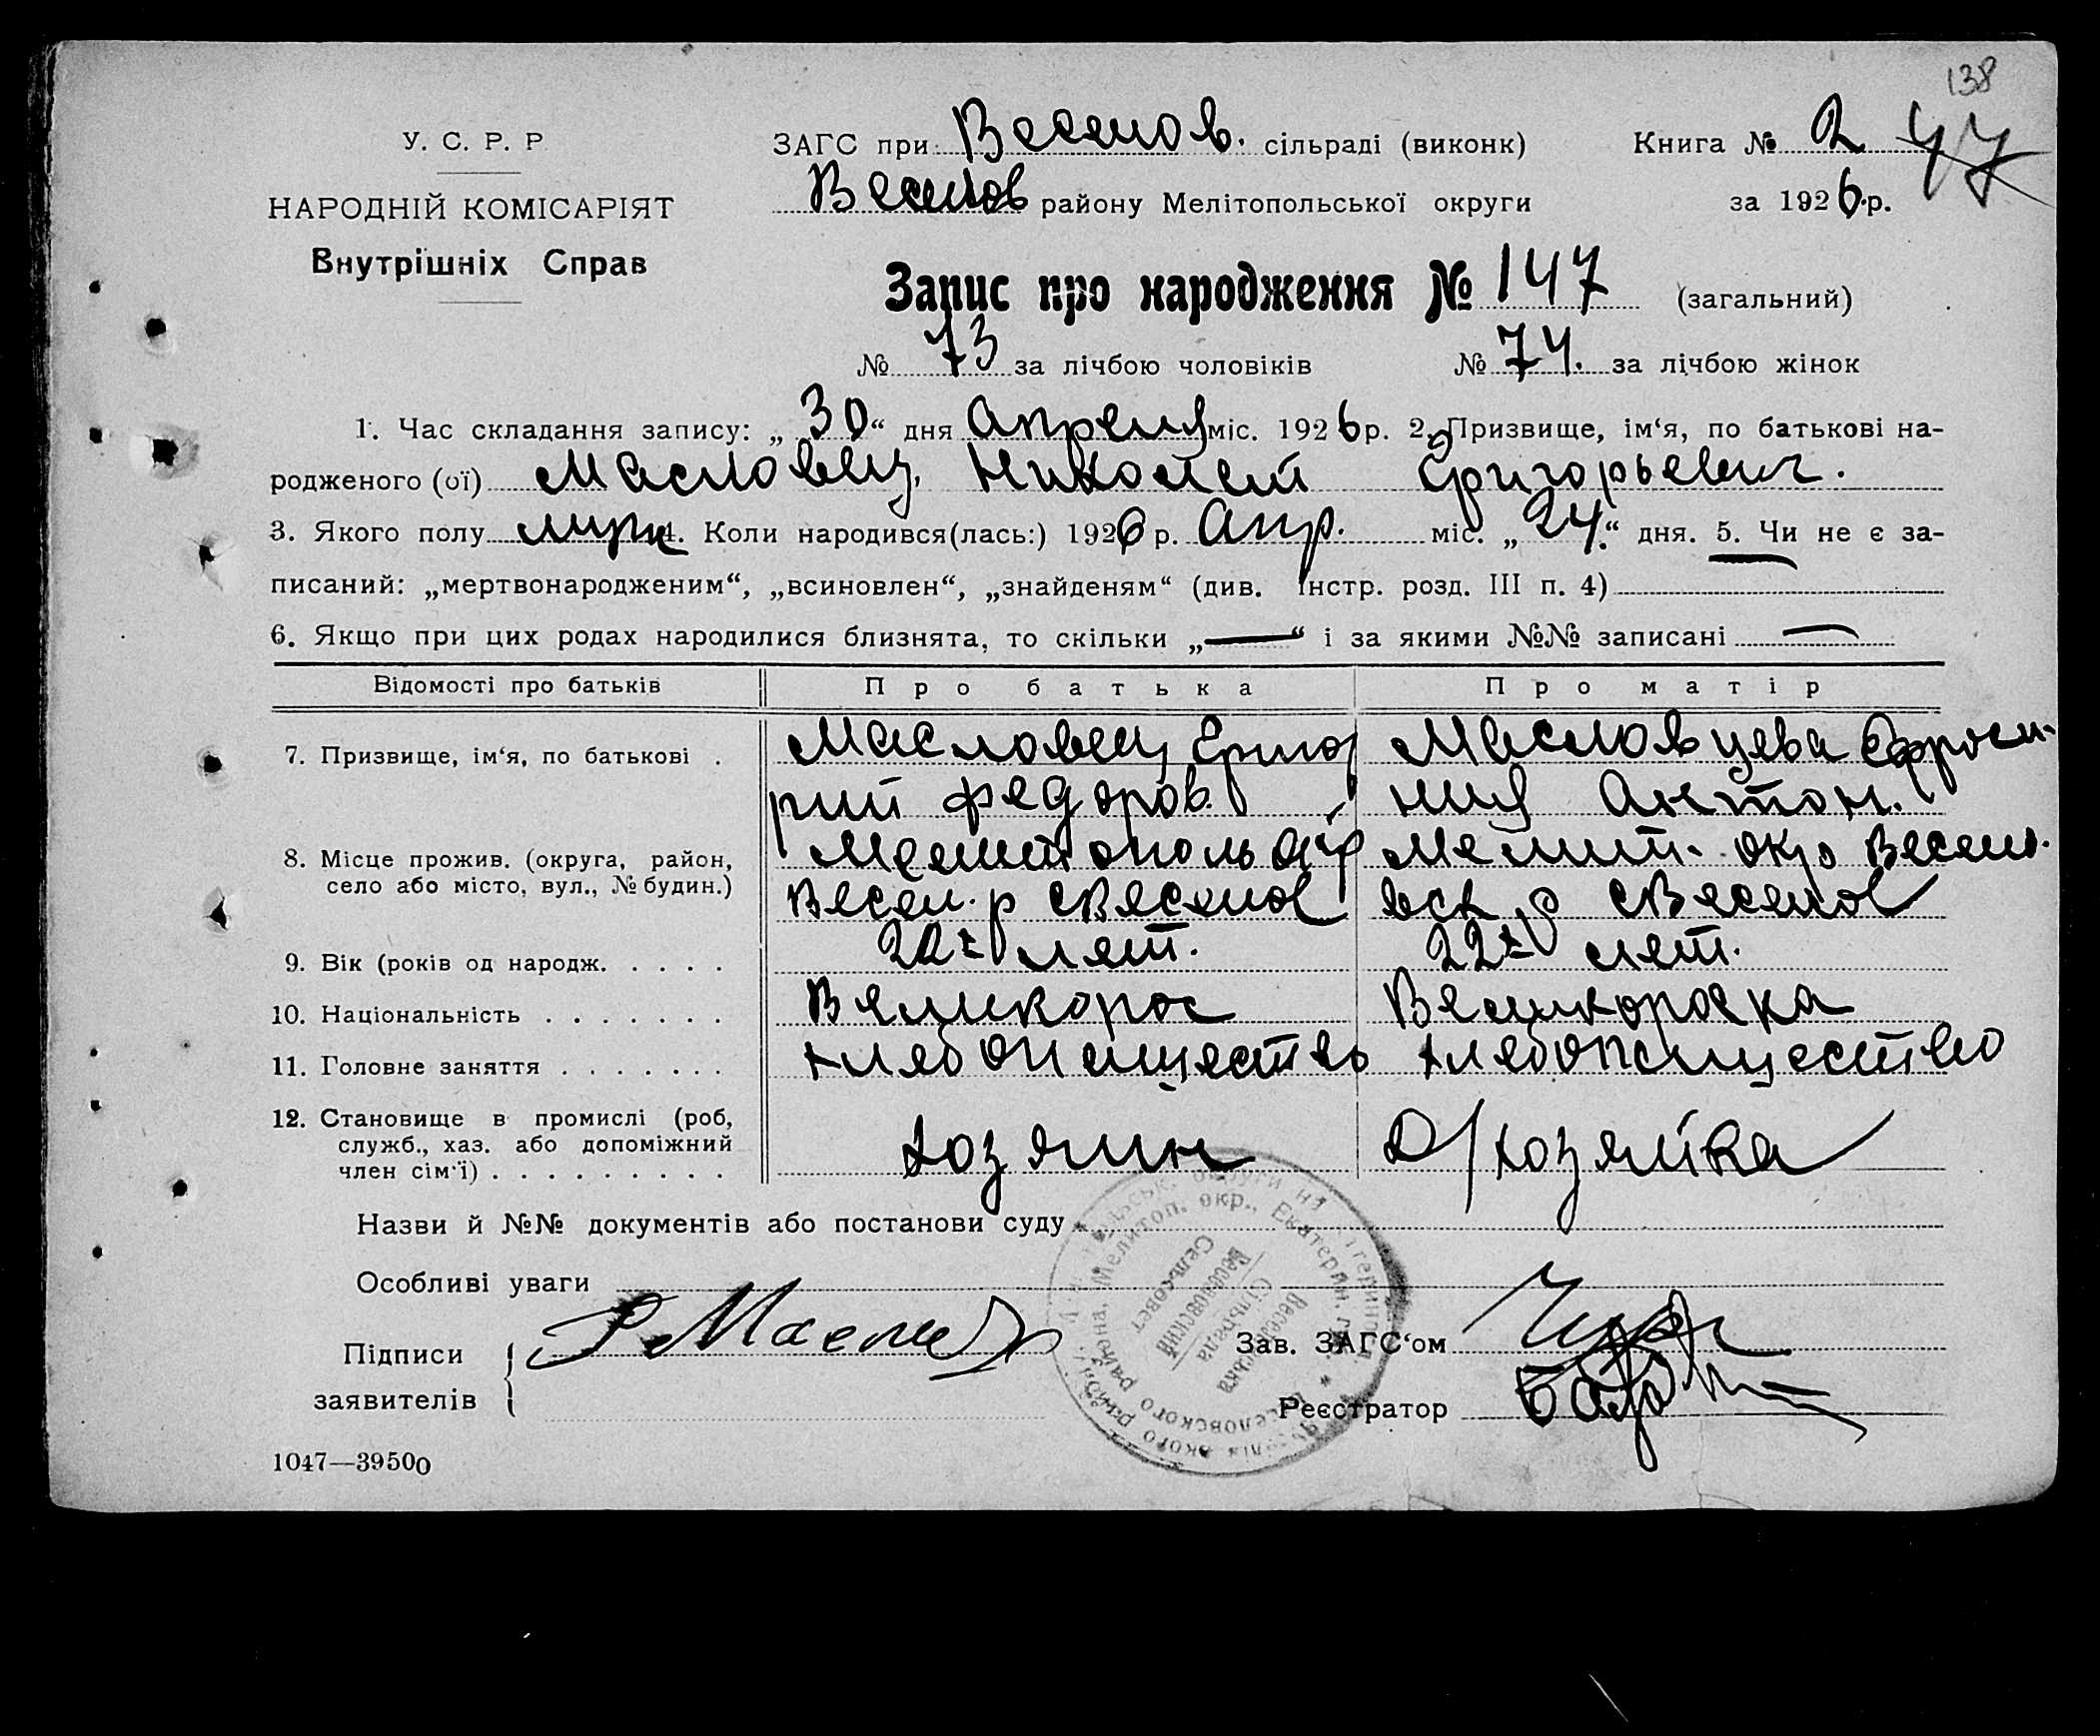 138
У. С. Р. Р
ЗАГС при Веселов. сільраді (виконк)
Книга № 2
47
НАРОДНІЙ КОМІСАРІЯТ
Веселов району Мелітопольської округи
за 1926 р.
Внутрішніх Справ
Запис про народження № 147 (загальний)
№ 73 за лічбою чоловіків № 74. за лічбою жінок
1. Час складання запису: „30“ дня Апреля міс. 1926 р. 2. Призвище, ім‘я, по батькові на-
родженого (ої) Масловец Николай Григорьевич.
3. Якого полу муж 4. Коли народився(лась:) 1926 р. Апр. міс. „24.“ дня. 5. Чи не є за-
писаний: „мертвонародженим“, „всиновлен“, „знайденям“ (див. Інстр. розд. III п. 4)
6. Якщо при цих родах народилися близнята, то скільки „—“ і за якими №№ записані —
Відомості про батьків
Про батька
Про матір
7. Призвище, ім‘я, по батькові .
Масловец Григо
рий Федоров.
Масловцева Ефроси-
ния Антон.
8. Місце прожив. (округа, район,
село або місто, вул., № будин.)
Мелитополь окр
Весел. р с Веселое
Мелит. окр Весело-
вск р с Веселое
9. Вік (років од народж. . . . .
22х лет.
22х лет.
10. Національність . . . . . . .
Великорос
Великороска
11. Головне заняття . . . . . . .
хлебопашество
хлебопашество
12. Становище в промислі (роб,
служб., хаз. або допоміжний
член сім‘ї) . . . . . . . . .
хозяин
Д/хозяйка
Назви й №№ документів або постанови суду
Особливі уваги
Підписи
заявителів
Зав. ЗАГС‘ом
Реєстратор
Мелитоп. окр., Екатерин. губ.
Веселовского района,
Веселовский
Сельсовет
Веселівська
Сільрада
1047—39500